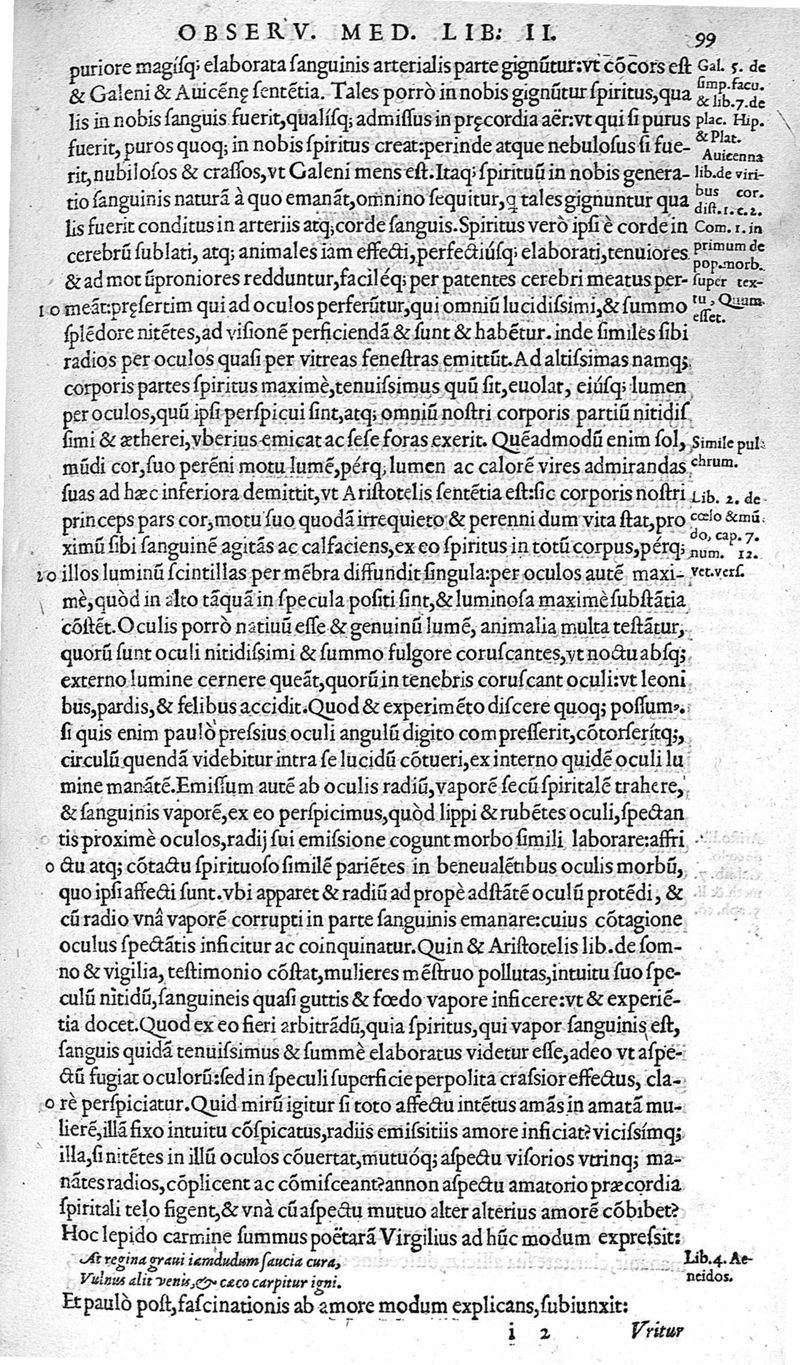 OBSERV. MED. LIB. II. 99
puriore magisq; elaborata sanguinis arterialis parte gignūtur: vt cōcors est
& Galeni & Auicēnę sentētia. Tales porrò in nobis gignūtur spiritus, qua
lis in nobis sanguis fuerit, qualisq; admissus in pręcordia aër: vt qui si purus
fuerit, puros quoq; in nobis spiritus creat: perinde atque nebulosus si fue-
rit, nubilosos & crassos, vt Galeni mens est. Itaq; spirituū in nobis genera-
tio sanguinis naturā à quo emanāt, omnino sequitur, q̨ tales gignuntur qua
lis fuerit conditus in arteriis atq; corde sanguis. Spiritus verò ipsi è corde in
cerebrū sublati, atq; animales iam effecti, perfectiúsq; elaborati, tenuiores
& ad motū proniores redduntur, faciléq; per patentes cerebri meatus per-
10 meāt: pręsertim qui ad oculos perferūtur, qui omniū lucidissimi, & summo
splēdore nitētes, ad visionē perficiendā & sunt & habētur. inde similes sibi
radios per oculos quasi per vitreas fenestras emittūt. Ad altissimas namq;
corporis partes spiritus maximè, tenuissimus quū sit, euolat, eiúsq; lumen
per oculos, quū ipsi perspicui sint, atq; omniū nostri corporis partiū nitidis
simi & ætherei, vberius emicat ac sese foras exerit. Quēadmodū enim sol,
mūdi cor, suo perēni motu lumē, pérq; lumen ac calorē vires admirandas
suas ad hæc inferiora demittit, vt Aristotelis sentētia est: sic corporis nostri
princeps pars cor, motu suo quodā irrequieto & perenni dum vita stat, pro
ximū sibi sanguinē agitās ac calfaciens, ex eo spiritus in totū corpus, pérq;
20 illos luminū scintillas per mēbra diffundit singula: per oculos autē maxi-
mè, quòd in alto tāquā in specula positi sint, & luminosa maximè substātia
cōstēt. Oculis porrò natiuū esse & genuinū lumē, animalia multa testātur,
quorū sunt oculi nitidissimi & summo fulgore coruscantes, vt noctu absq;
externo lumine cernere queāt, quorū in tenebris coruscant oculi: vt leoni
bus, pardis, & felibus accidit. Quod & experimēto discere quoq; possumꝰ.
si quis enim paulò pressius oculi angulū digito compresserit, cōtorseritq;,
circulū quendā videbitur intra se lucidū cōtueri, ex interno quidē oculi lu
mine manātē. Emissum autē ab oculis radiū, vaporē secū spiritalē trahere,
& sanguinis vaporē, ex eo perspicimus, quòd lippi & rubētes oculi, spectan
tis proximè oculos, radij sui emissione cogunt morbo simili laborare: affri
0 ctu atq; cōtactu spirituoso similē pariētes in beneualētibus oculis morbū,
quo ipsi affecti sunt. vbi apparet & radiū ad propè adstātē oculū protēdi, &
cū radio vnâ vaporē corrupti in parte sanguinis emanare: cuius cōtagione
oculus spectātis inficitur ac coinquinatur. Quin & Aristotelis lib. de som-
no & vigilia, testimonio cōstat, mulieres mēstruo pollutas, intuitu suo spe-
culū nitidū, sanguineis quasi guttis & fœdo vapore inficere: vt & experiē-
tia docet. Quod ex eo fieri arbitrādū, quia spiritus, qui vapor sanguinis est,
sanguis quidā tenuissimus & summè elaboratus videtur esse, adeo vt aspe-
ctū fugiat oculorū: sed in speculi superficie perpolita crassior effectus, cla-
0 rè perspiciatur. Quid mirū igitur si toto affectu intētus amās in amatā mu-
lierē, illā fixo intuitu cōspicatus, radiis emissitiis amore inficiat? vicissímq;
illa, si nitētes in illū oculos cōuertat, mutuóq; aspectu visorios vtrinq; ma-
nātes radios, cōplicent ac cōmisceant? annon aspectu amatorio præcordia
spiritali telo figent, & vnà cū aspectu mutuo alter alterius amorē cōbibet?
Hoc lepido carmine summus poëtarā Virgilius ad hūc modum expressit:
At regina graui iamdudum saucia cura,
Vulnus alit venis, & cæco carpitur igni.
Et paulò post, fascinationis ab amore modum explicans, subiunxit:
i 2 Vritur
Gal. 5. de
simp. facu.
& lib. 7. de
plac. Hip.
& Plat.
Auicenna
lib. de viri-
bus cor.
dist. 1. c. 2.
Com. 1. in
primum de
pop. morb.
super tex-
tu, Quum
esset.
Simile pul-
chrum.
Lib. 2. de
cœlo & mū
do, cap. 7.
num. 12.
vet. vers.
Lib. 4. Ae-
neidos.